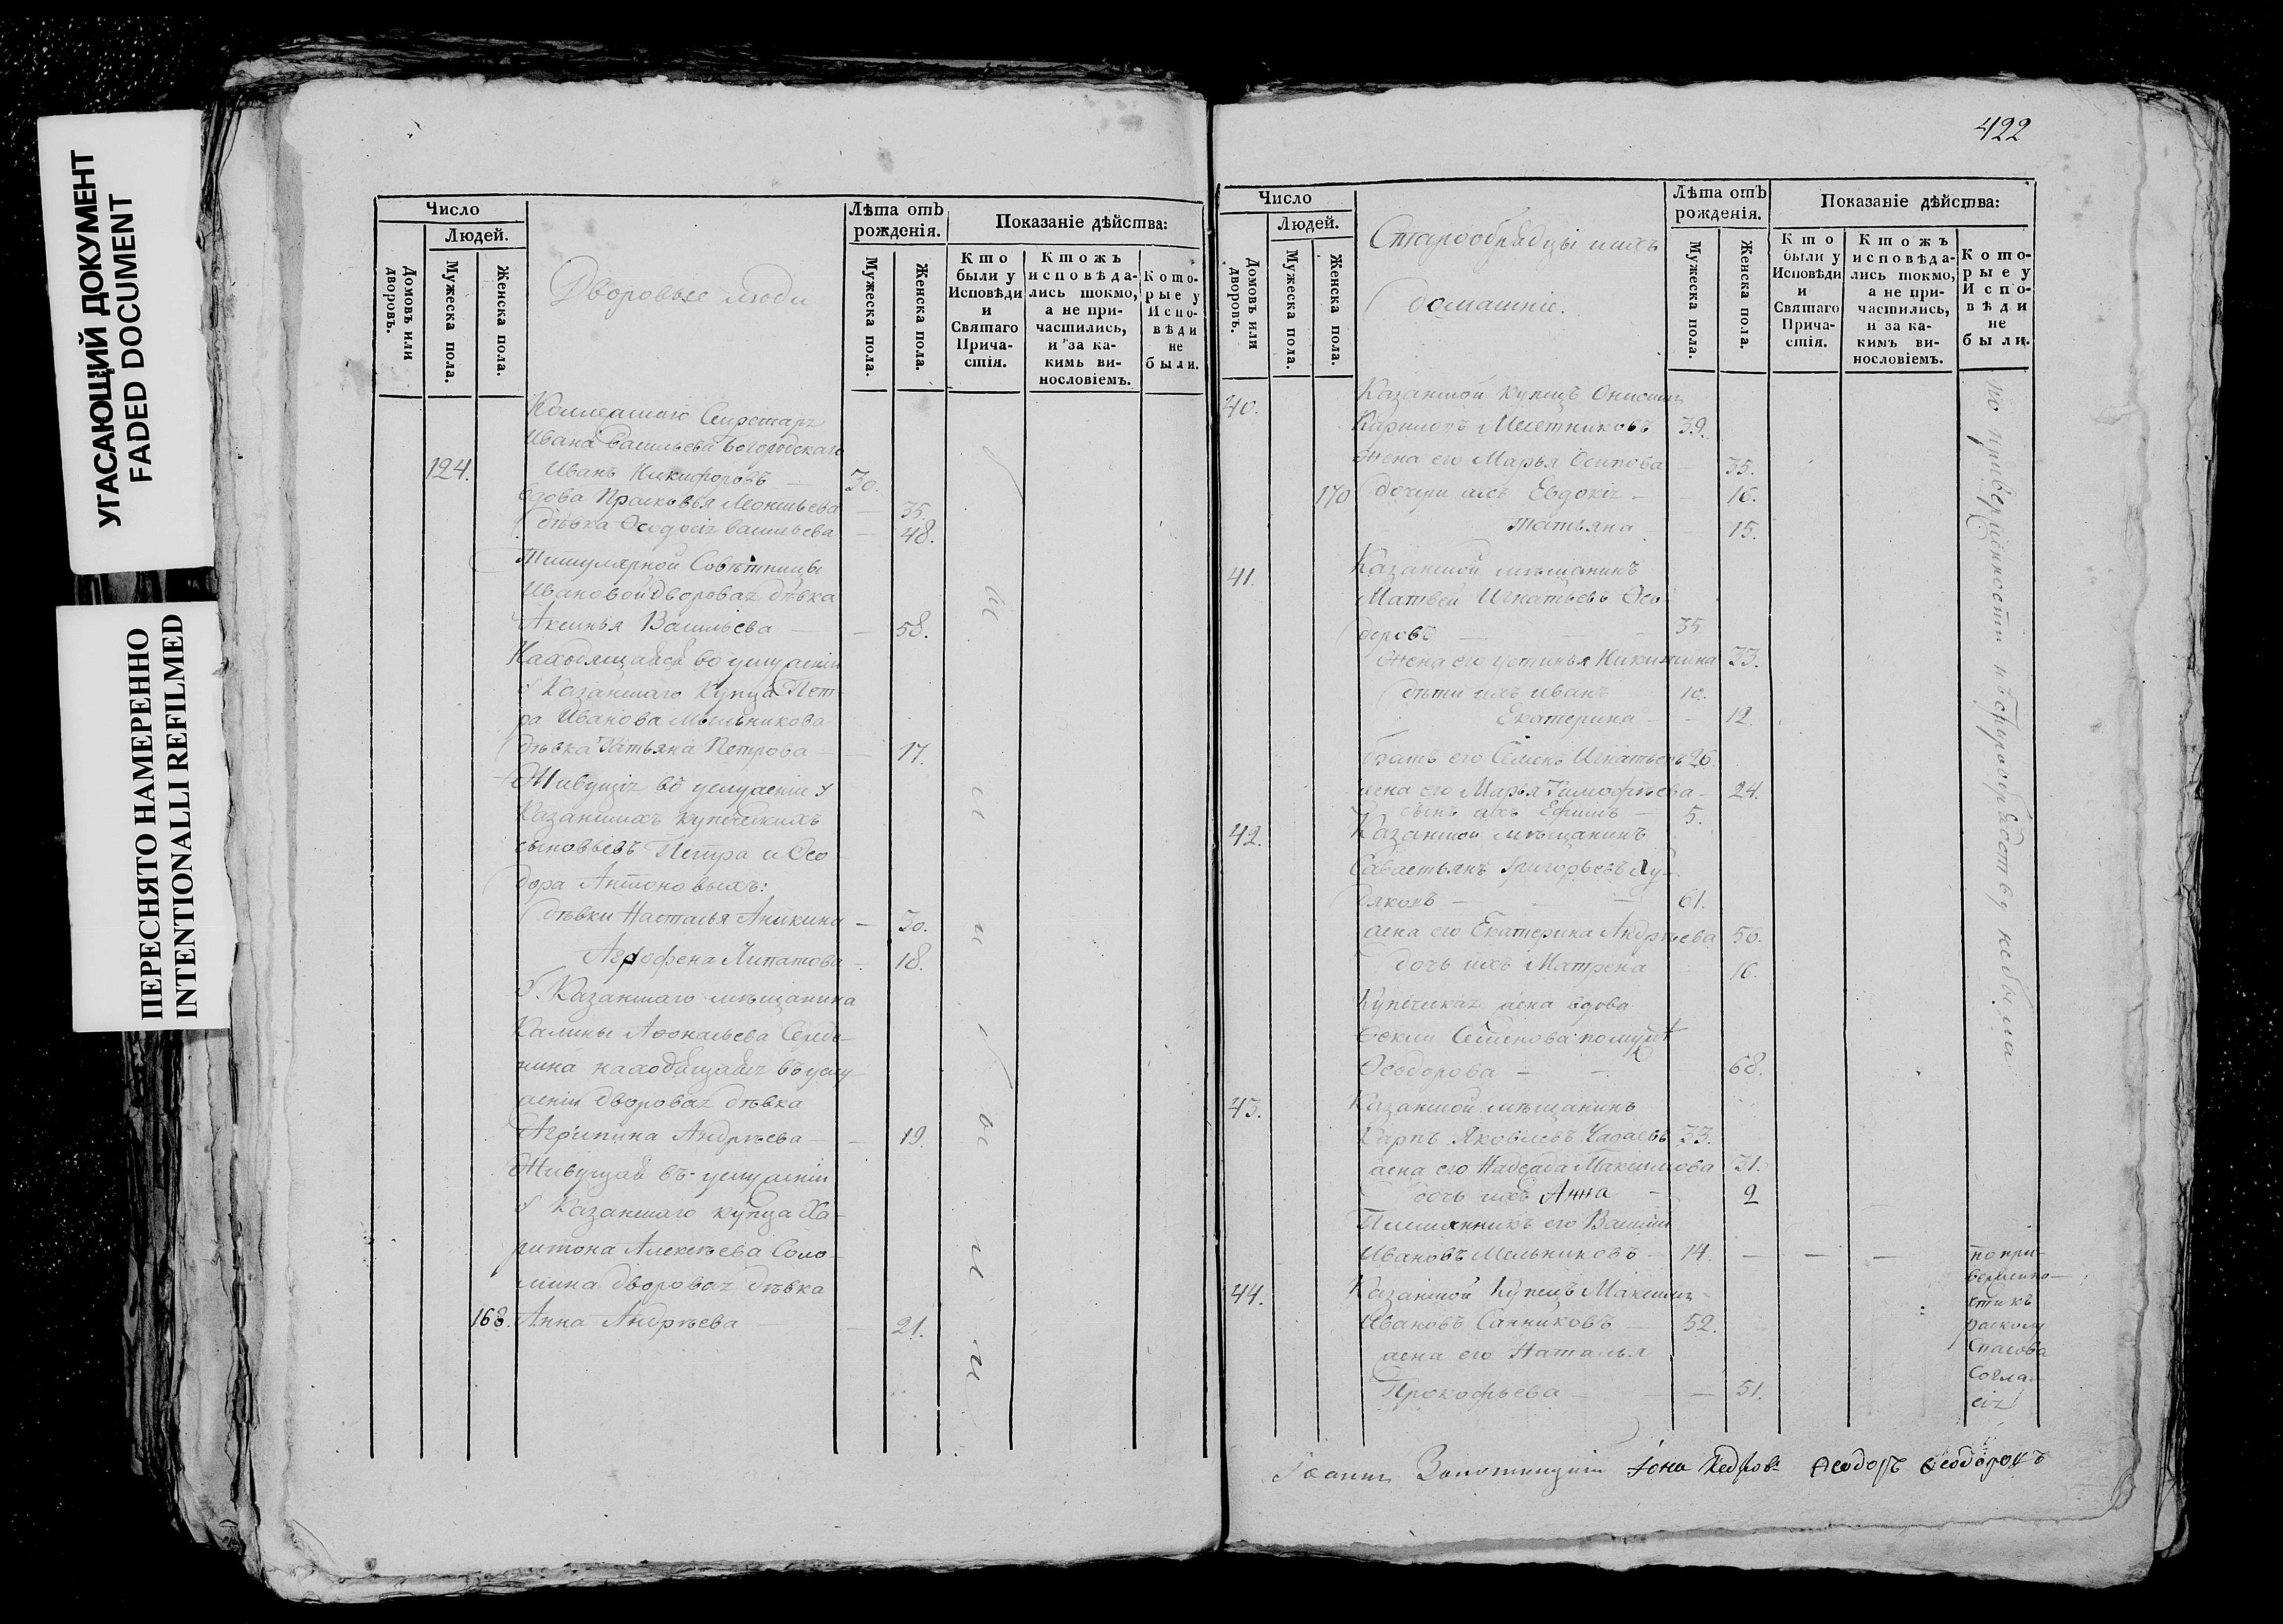 УГАСАЮЩИЙ ДОКУМЕНТ
FADED DOCUMENT
ПЕРЕСНЯТО НАМЕРЕННО
INTENTIONALLI REFILMED
Число
Людей.
Домовъ или дворовъ.
Мужеска пола.
Женска пола.
Дворовые люди
Лѣта отъ
рожденія.
Мужеска пола.
Женска пола.
Показаніе дѣйства:
Кто
были у
Исповѣди
и
Святаго
Прича-
стія.
Ктожъ
исповѣда-
лись токмо,
а не при-
частились,
и за ка-
кимъ ви-
нословіемъ.
Кото-
рые у
Испо-
вѣди
не
были.
Ивана Васильева Богородскаго
124. Иванъ Никифоровъ — 30.
вдова Прасковья Леонтьева — 35.
дѣвка Ѳеодосія Васильева — 48.
Титулярной Совѣтницы
Ивановой дворовая дѣвка
Аксинья Васильева — 58.
Находящаяся во услуженіи
у Казанскаго Купца Пет-
ра Иванова Мыльникова
дѣвка Татьяна Петрова — 17.
Живущія во услуженіи у
Казанскихъ купеческихъ
сыновьевъ Петра и Ѳео-
дора Антоновыхъ:
дѣвки Настасья Аникина — 30.
Агрофена Липатова — 18.
У Казанскаго мѣщанина
нина находящаяся въ услу-
женіи дворовая дѣвка
Агрипина Андрѣева — 19.
Живущая въ услуженіи
у Казанскаго купца Ха-
ритона Алексѣева Соло-
мина дворовая дѣвка
168. Анна Андрѣева — 21.
422
Число
Людей.
Домовъ или дворовъ.
Мужеска пола.
Женска пола.
Старообрядцы и ихъ
домашніе.
Лѣта отъ
рожденія.
Мужеска пола.
Женска пола.
Показаніе дѣйства:
Кто
были у
Исповѣди
и
Святаго
Прича-
стія.
Ктожъ
исповѣда-
лись токмо,
а не при-
частились,
и за ка-
кимъ ви-
нословіемъ.
Кото-
рые у
Испо-
вѣди
не
были.
40. Казанской купецъ Онисимъ
39.
Жена его Марья Осипова — 35.
170 дочери ихъ Евдокія — 16.
Татьяна — 15.
41. Казанской мѣщанинъ
Матвей Игнатьевъ Ѳео-
доровъ — 35
Жена его Устинья Никитина 33.
дѣти ихъ Иванъ 10.
Екатерина — 12.
братъ его Семенъ Игнатьевъ 26.
жена его Марья Тимофѣева — 24.
сынъ ихъ Ефимъ — 5.
42. Казанской мѣщанинъ
Савастьянъ Григорьевъ
61.
жена его Екатерина Андрѣева 56.
дочь ихъ Матрена 16.
Купеческая жена вдова
Ѳекла Семенова по мужѣ
Ѳеодорова — 68.
43. Казанской мѣщанинъ
Карпъ Яковлевъ Чадаевъ 33.
жена его Надежда Максимова 31.
дочь ихъ Анна — 9
Племянникъ его Василий
Ивановъ Мельниковъ — 14. — — —
по при-
вержено-
сти къ
расколу
Спасова
согла-
сія
44. Казанской Купецъ Максимъ
Ивановъ Санниковъ — 52.
жена его Наталья
Прокофьева — 51.
Іоаннъ Іона Кедровъ Ѳеодоръ Ѳеодоровъ